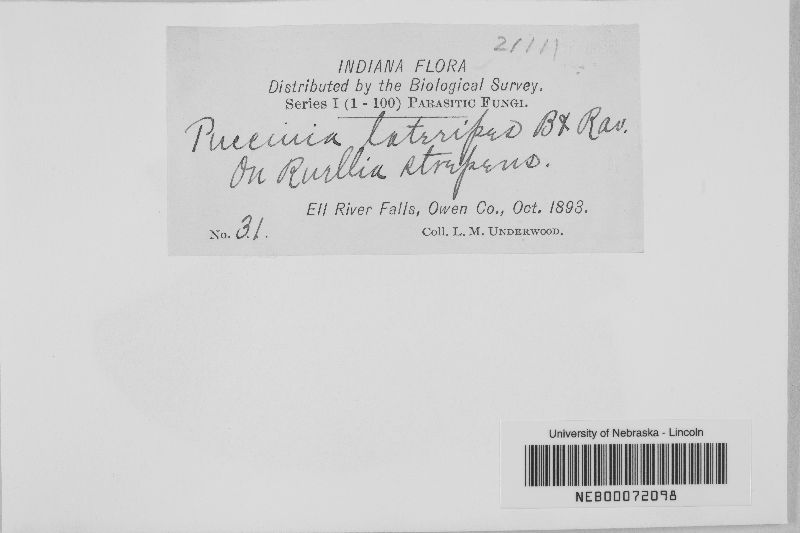 21111
INDIANA FLORA
Distributed by the Biological Survey.
Series I (1 - 100) PARASITIC FUNGI.
Puccinia lateripes B & Rav.
On Ruellia strepens.
Ell River Falls, Owen Co., Oct. 1893.
No. 31.
Coll. L. M. UNDERWOOD.
University of Nebraska - Lincoln
NEB00072098